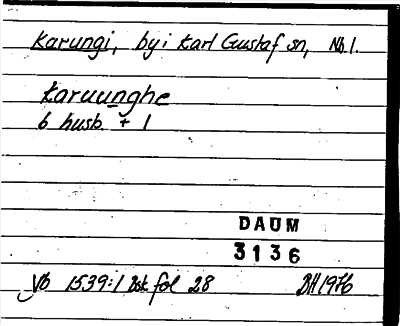 Karungi, by i Karl Gustaf sn, Nb.
Karuunghe
6 husb. + 1
DAUM
3136
Vb 1539:1 Bsk fol 28 BH 1976